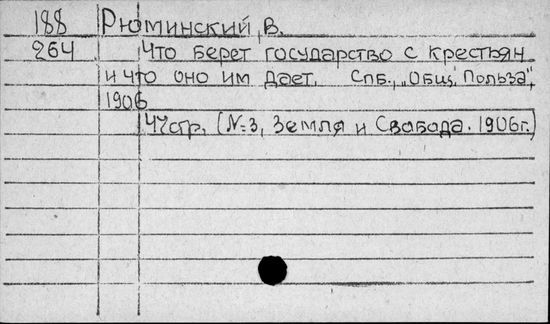 188 Рюминский, В.
264 Что берет государство с крестьян
и что оно им дает. Спб., „Общ. Польза",
1906
44стр. (№3, Земля и Свобода. 1906г.)